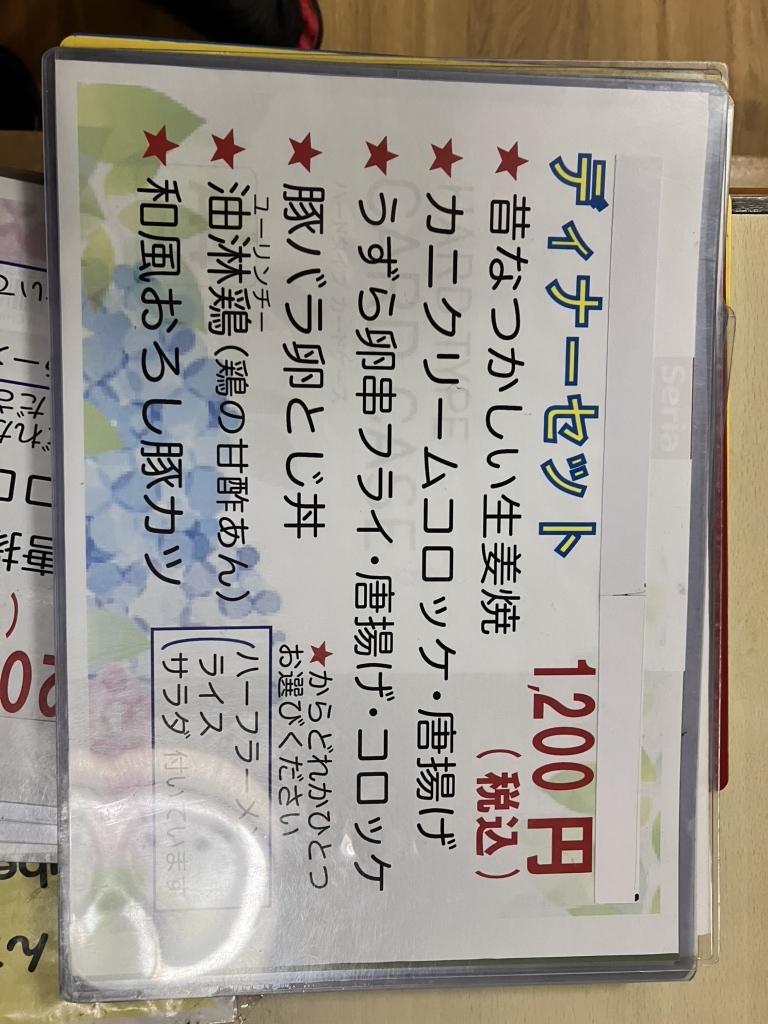 ディナーセット 1,200円
(税込)
★昔なつかしい生姜焼
★カニクリームコロッケ・唐揚げ
★うずら卵串フライ・唐揚げ・コロッケ
★豚バラ卵とじ丼
ユーリンチー
★油淋鶏(鶏の甘酢あん)
★和風おろし豚カツ
★からどれかひとつ
お選びください
ハーフラーメン
ライス
サラダ 付いています
Seria
CARD CASE